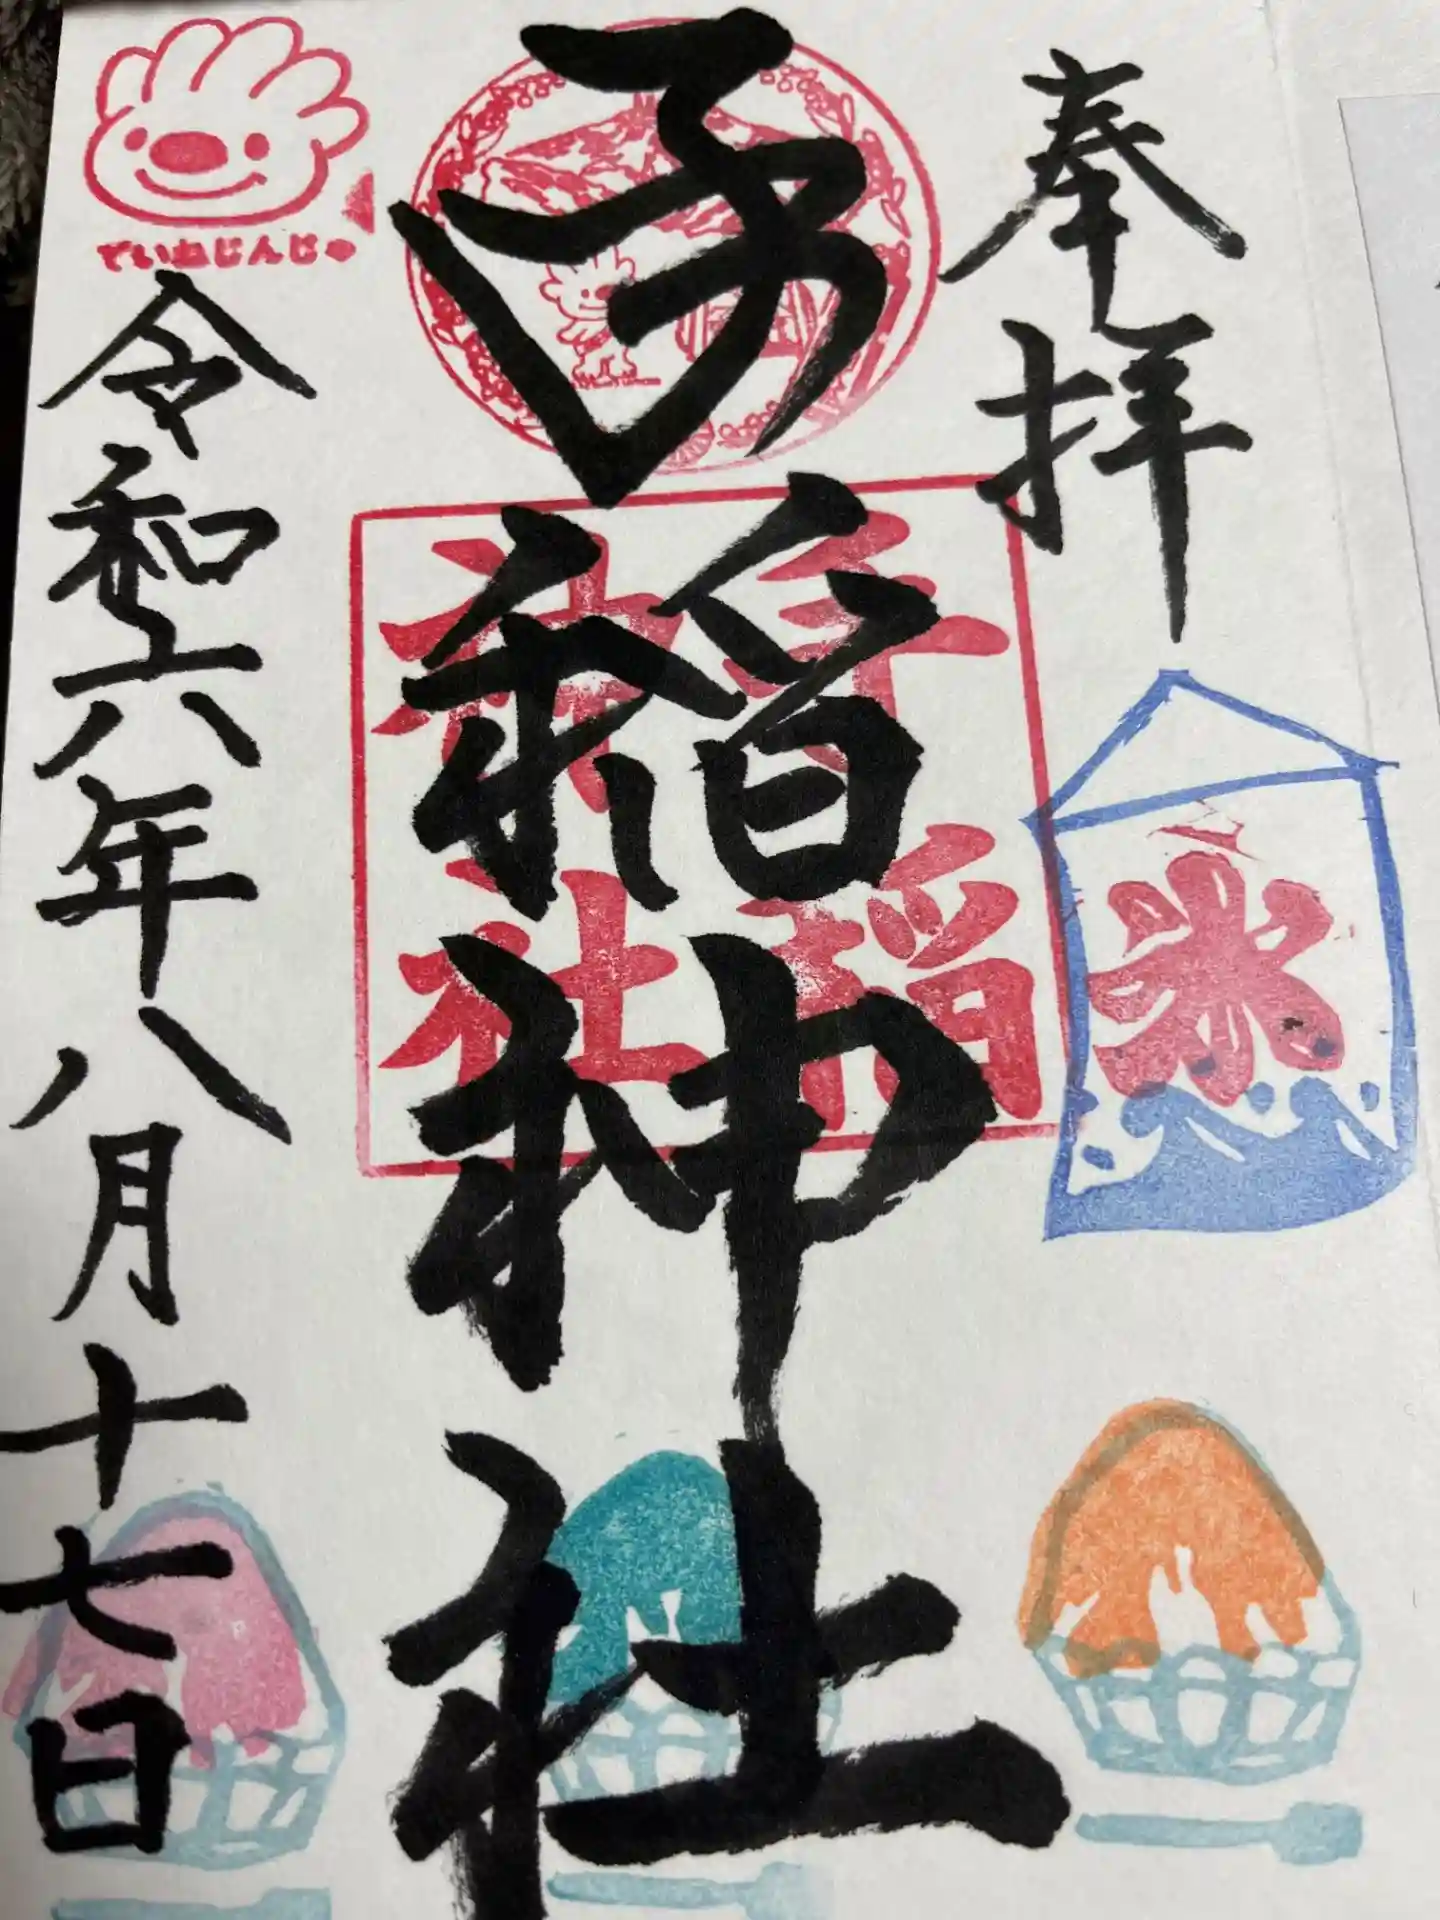 奉拝
氷
手稲神社
手稲
神社
ていねじんじゃ
令和六年八月十七日